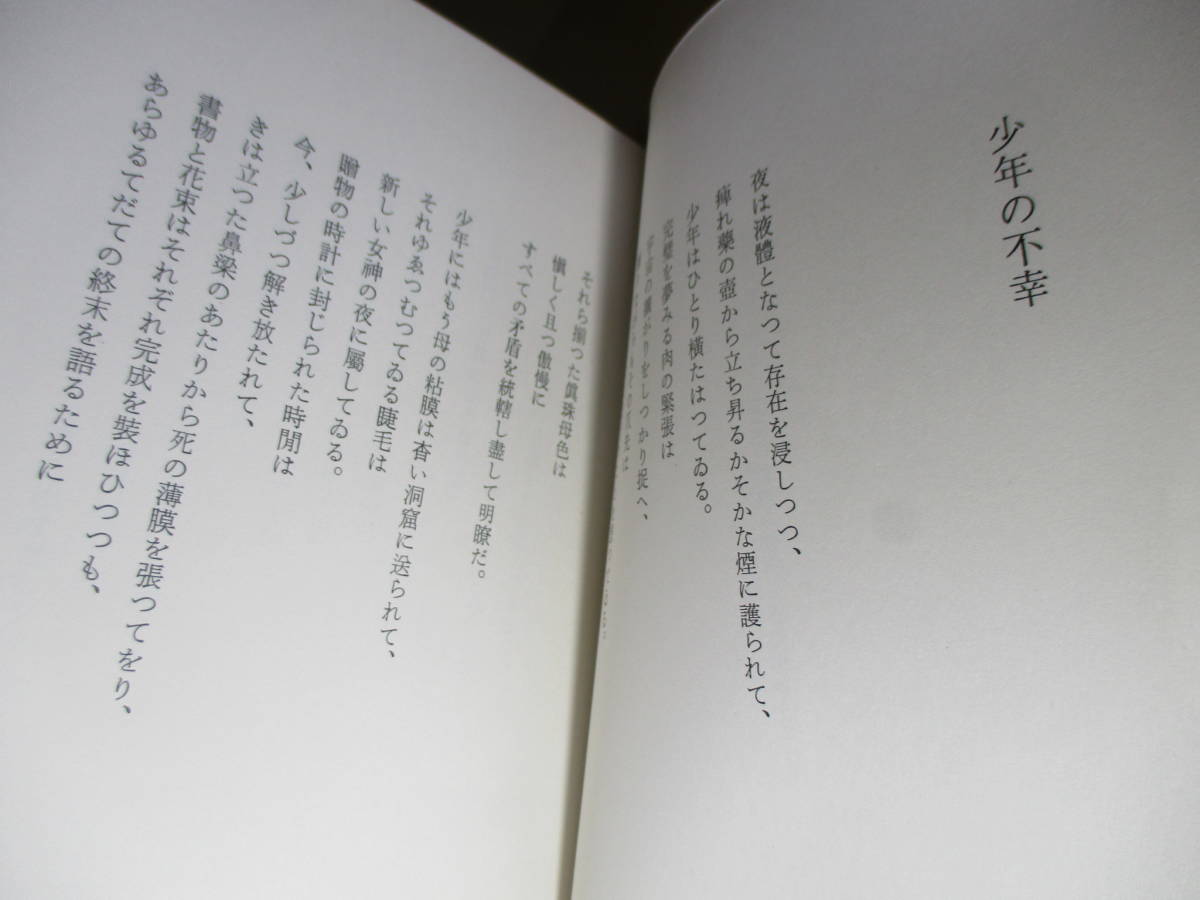 少年の不幸
夜は液體となつて存在を浸しつつ、
痺れ藥の壺から立ち昇るかそかな煙に護られて、
少年はひとり横たはつてゐる。
完璧を夢みる肉の緊張は
宇宙の擴がりをしつかり捉へ、
それら揃つた眞珠母色は
愼しく且つ傲慢に
すべての矛盾を統轄し盡して明瞭だ。
少年にはもう母の粘膜は杳い洞窟に送られて、
それゆゑつむつてゐる睫毛は
新しい女神の夜に屬してゐる。
贈物の時計に封じられた時閒は
今、少しづつ解き放たれて、
きは立つた鼻梁のあたりから死の薄膜を張つてをり、
書物と花束はそれぞれ完成を裝ほひつつも、
あらゆるてだての終末を語るために